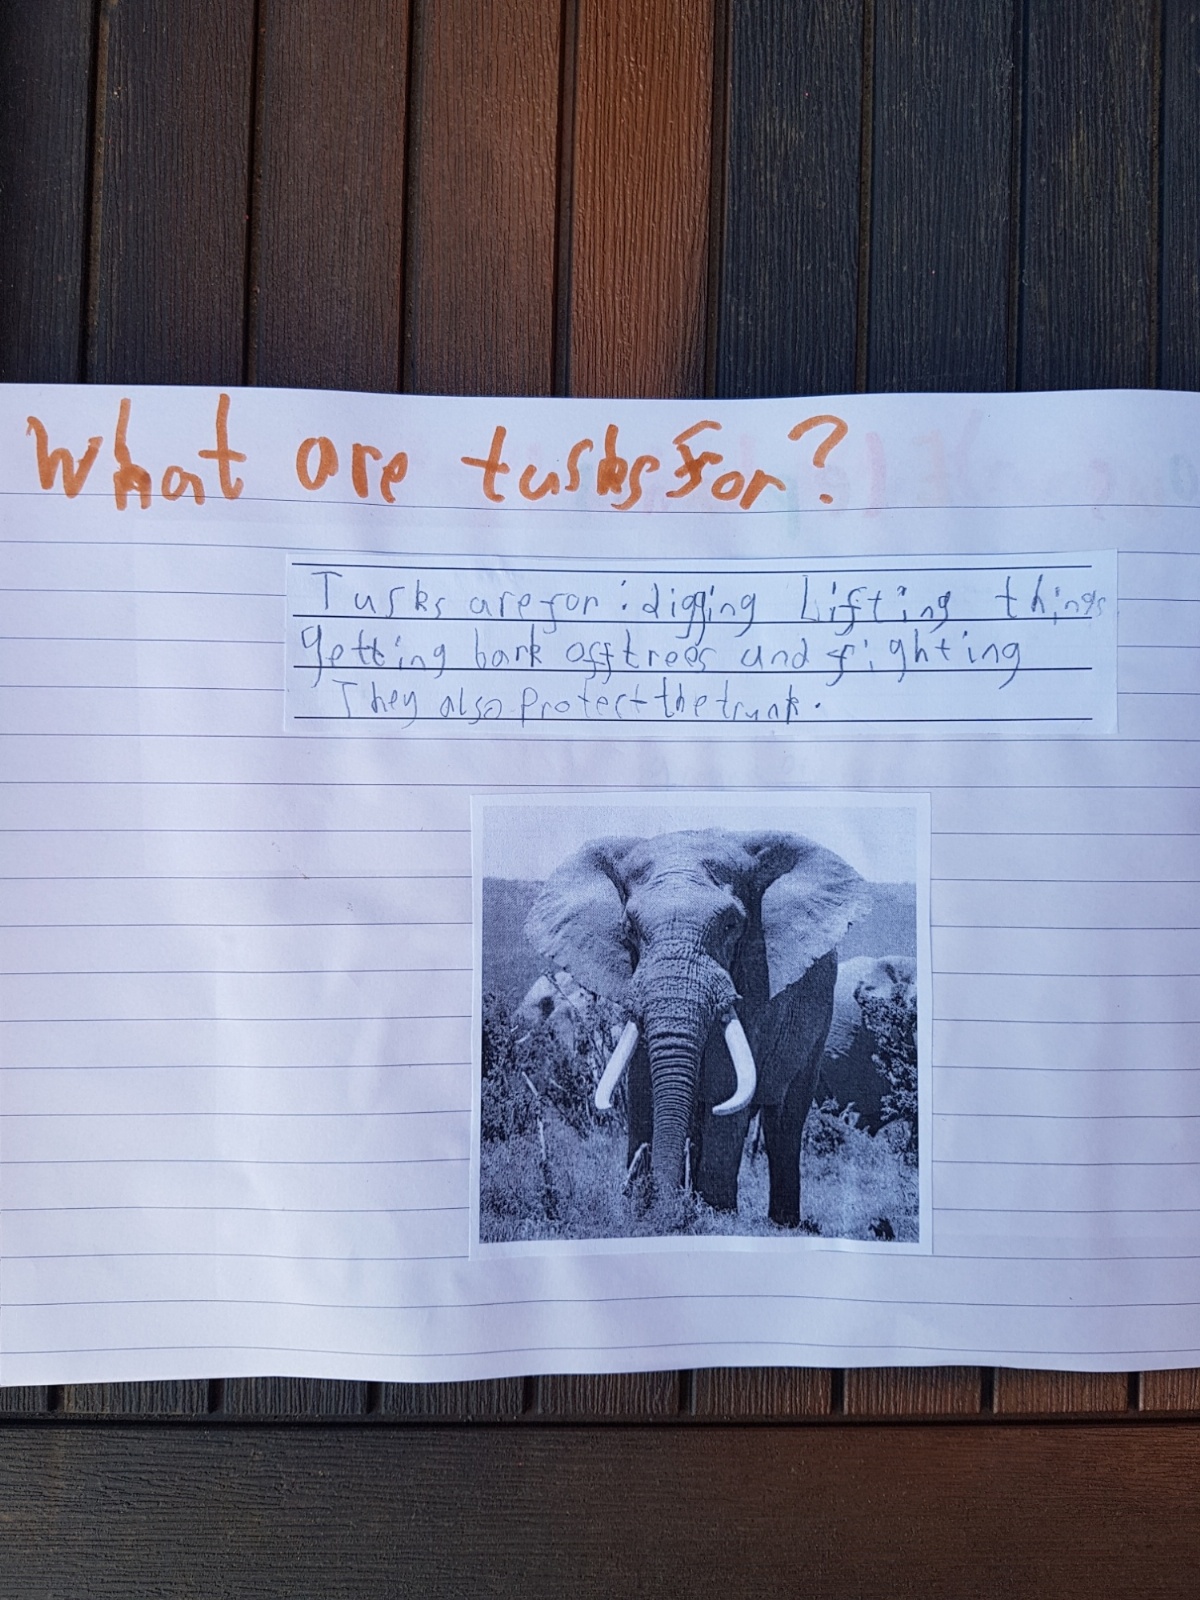 What are tusks for?
Tusks are for: digging Lifting things
getting bark off trees and fighting
They also protect the trunk.